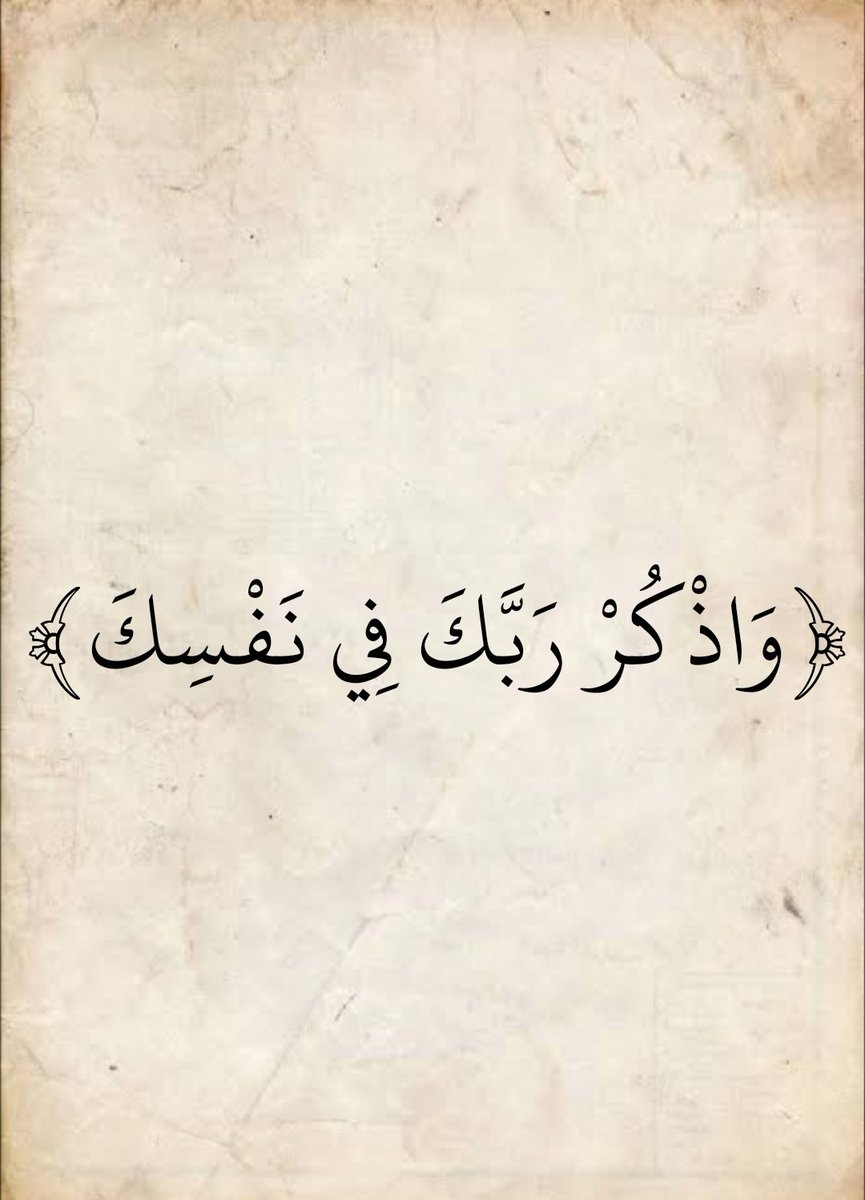 ﴿وَاذْكُرْ رَبَّكَ فِي نَفْسِكَ﴾